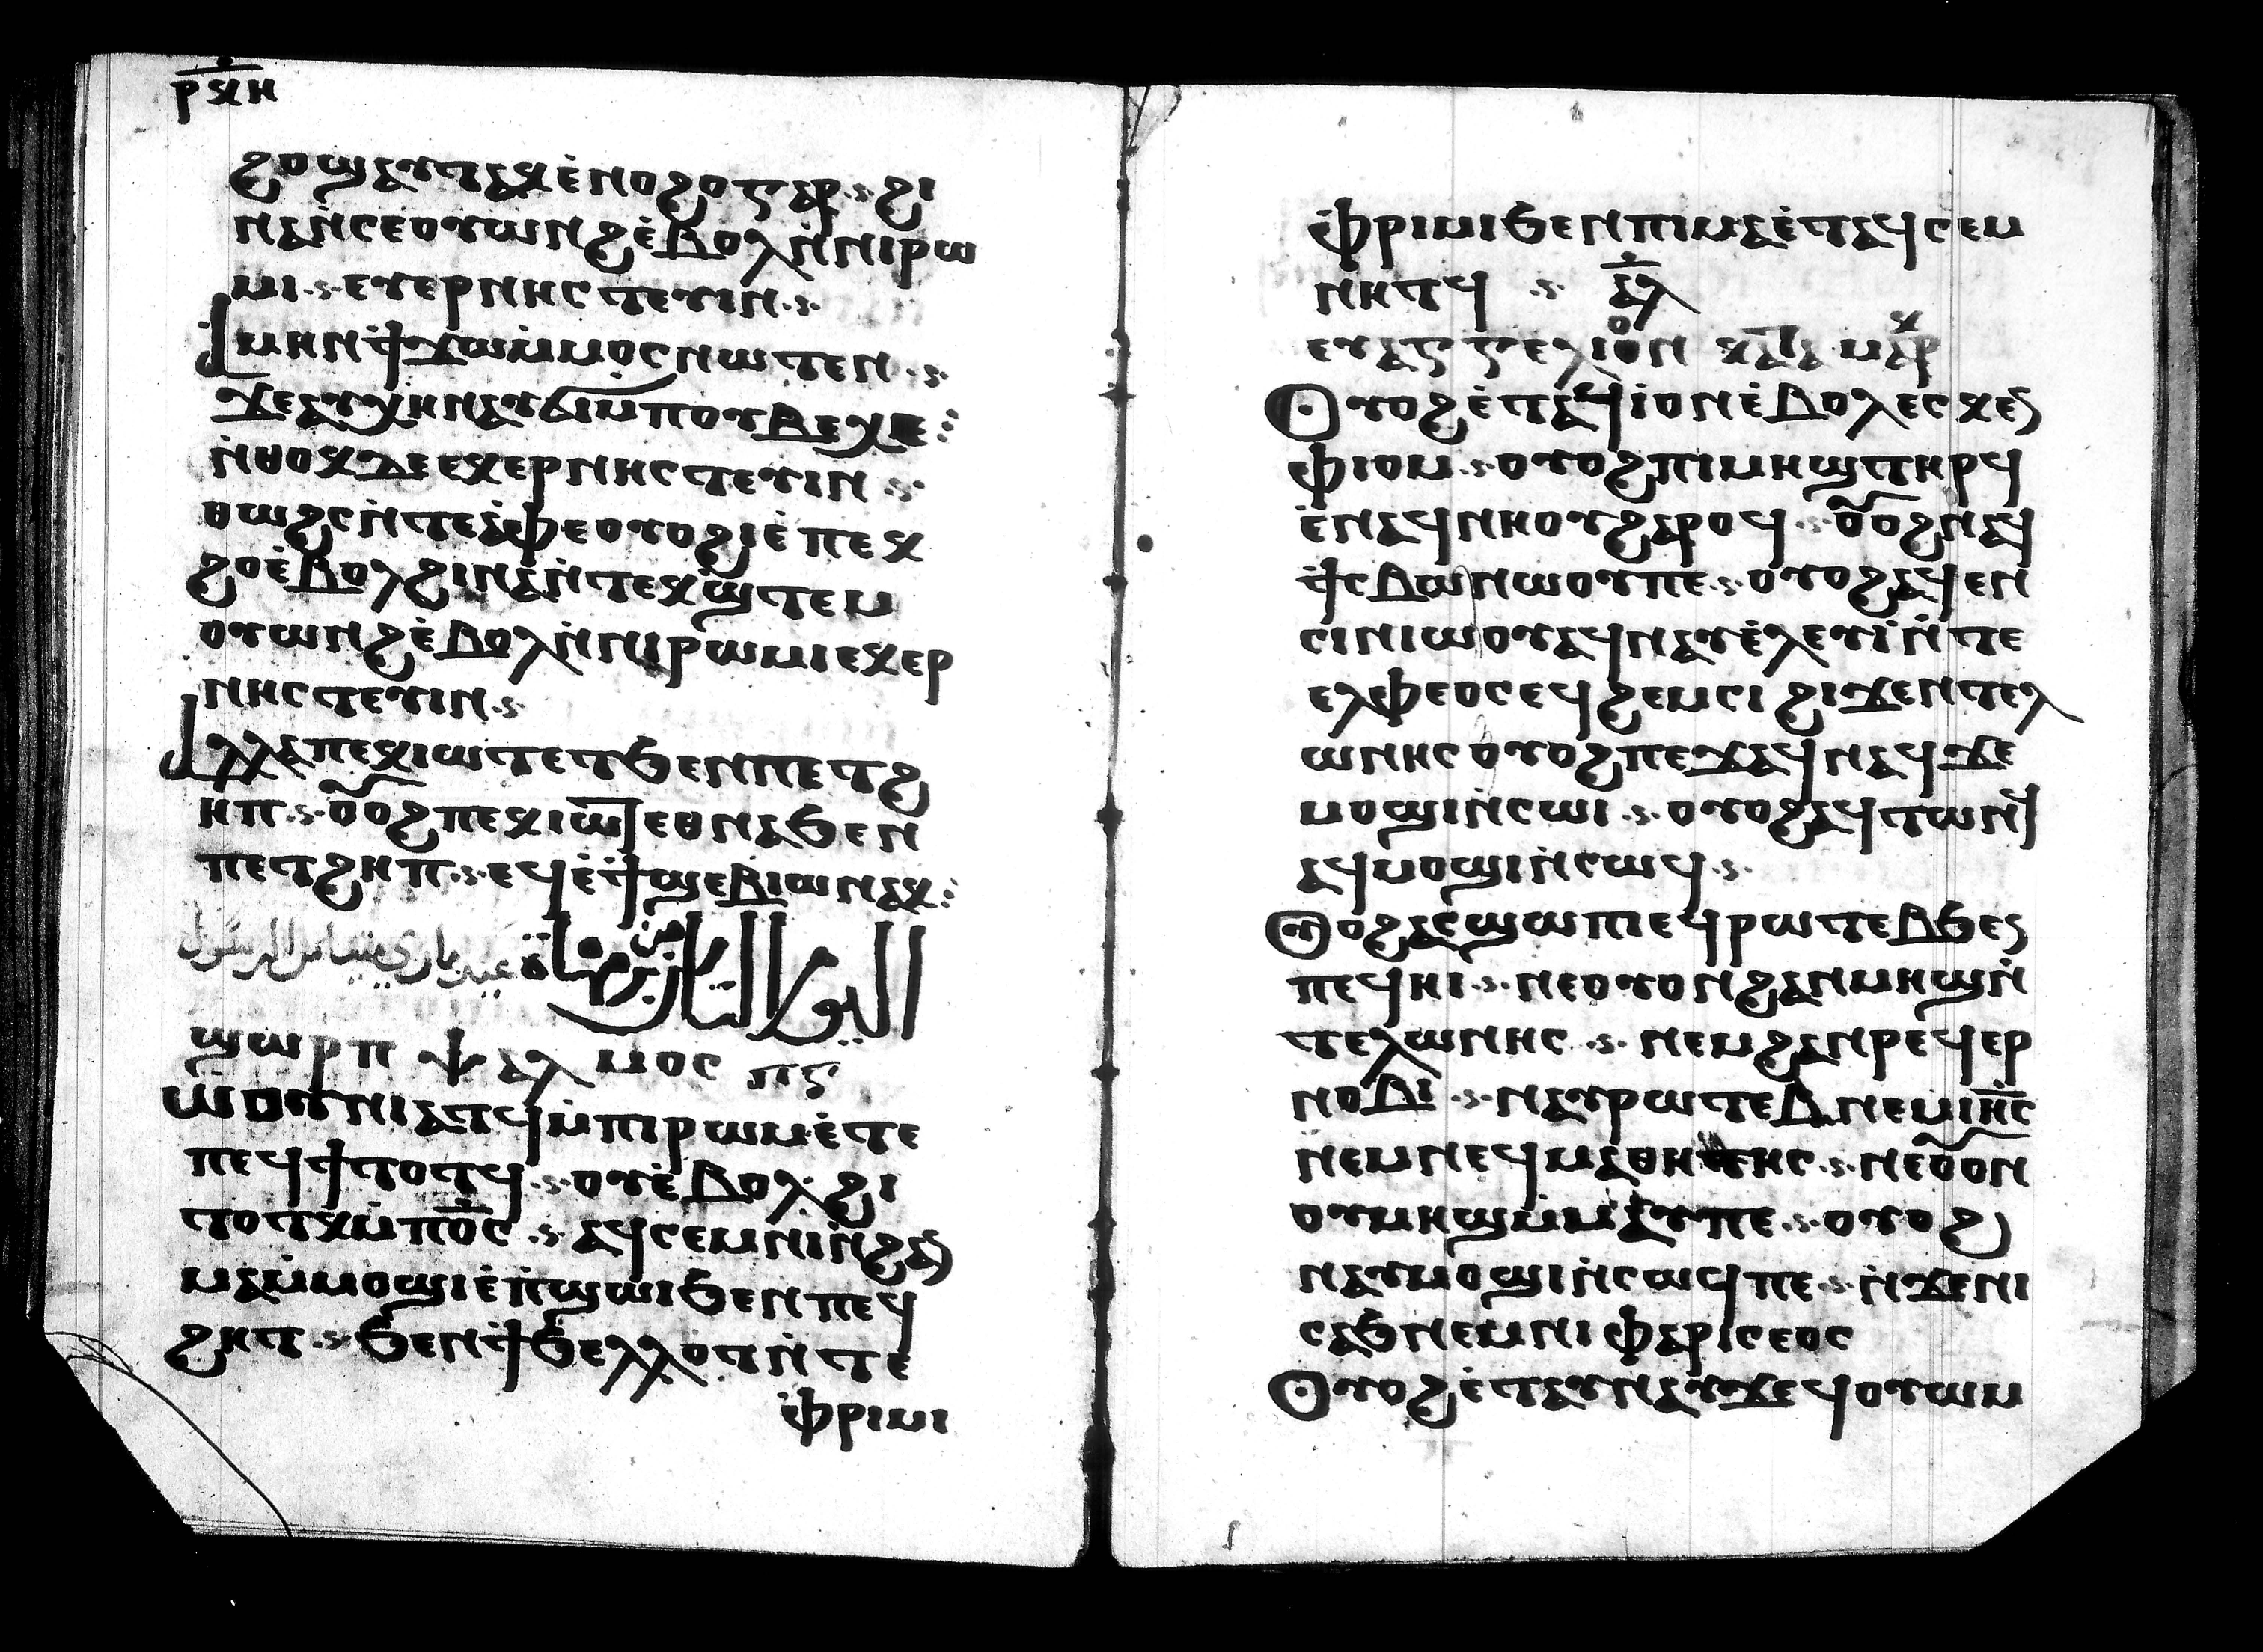 ⲣⲝⲏ
ϩⲟϣⲁⲩⲧⲁⲕⲉ̇ⲛⲟϩⲟⲅⲁⲣ ⲥ ϩⲓ
ⲛⲁⲛ̇ⲥⲉⲟⲩⲱⲛϩⲉ̇ⲃⲟⲗⲛ̇ⲛⲓⲣⲱ
ⲙⲓ ⲥ ⲉⲩⲉⲣⲛⲏⲥⲧⲉⲩⲓⲛ ⲥ
ⲁ̇ⲙⲏⲛϯϫⲱⲙ̇ⲙⲟⲥⲛⲱⲧⲉⲛ ⲥ
ϫⲉⲁⲩⲕⲏⲛⲁⲩϭⲓⲙ̇ⲡⲟⲩⲃⲉⲭⲉ
ⲛ̇ⲑⲟⲕⲇⲉⲉⲕⲉⲣⲛⲏⲥⲧⲉⲩⲓⲛ ⲥ
ⲑⲱϩⲥⲛ̇ⲧⲉⲁ̇ⲫⲉⲟⲩⲟϩⲓⲉ̇ⲡⲉⲕ
ϩⲟⲉ̇ⲃⲟⲗϩⲓⲛⲁⲛ̇ⲧⲉⲕϣ̇ⲧⲉⲙ
ⲟⲩⲱⲛϩⲉ̇ⲃⲟⲗⲛ̇ⲛⲓⲣⲱⲙⲓⲉⲕⲉⲣ
ⲛⲏⲥⲧⲉⲩⲓⲛ ⲥ
ⲁⲗⲗⲁⲡⲉⲕⲓⲱⲧⲉⲧϧⲉⲛⲡⲉⲧϩ
ⲏⲡ ⲥ ⲟⲩⲟϩⲡⲉⲕⲓⲱⲧⲉⲑⲛⲁϧⲉⲛ
ⲡⲉⲧϩⲏⲡ ⲥ ⲉϥⲉ̇ϯϣⲉⲃⲓⲱⲛⲁⲕ
اليوم الثالث من برمهات عيد ماري متياس الرسول
ϣⲱⲣⲡ ⲯⲁⲗⲙⲟⲥ ⲡⲅ
ⲱⲟⲩⲛⲓⲁⲧϥⲙ̇ⲡⲓⲣⲱⲙⲉ̇ⲧⲉ
ⲡⲉϥϯⲧⲟⲧϥ ⲥ ⲟⲩⲉ̇ⲃⲟⲗϩⲓ
ⲧⲟⲧⲕⲙ̇ⲡⲟ̅ⲥ̅ ⲥ ⲁϥⲥⲉⲙⲛⲓⲛ̇ϩⲁⲛ
ⲙⲁⲙ̇ⲙⲟϣⲓⲉ̇ⲡ̇ϣⲱⲓϧⲉⲛⲡⲉϥ
ϩⲏⲧ ⲥ ϧⲉⲛϯϧⲉⲗⲗⲟⲧⲛ̇ⲧⲉ
ⲫ̇ⲣⲓⲙⲓ
ⲫ̇ⲣⲓⲙⲓϧⲉⲛⲡⲓⲙⲁⲉ̇ⲧⲁϥⲥⲉⲙ
ⲛⲏⲧϥ ⲥ ⲁ̅ⲗ̅
ⲉⲩⲁⲅⲅⲉⲗⲓⲟⲛ ⲕⲁⲧⲁ ⲙⲁⲣⲕ
ⲟⲩⲟϩⲉ̇ⲧⲁϥⲓⲟⲛⲉ̇ⲃⲟⲗⲉⲥⲕⲉⲛ
ⲫ̇ⲓⲟⲙ ⲥ ⲟⲩⲟϩⲡⲓⲙⲏϣⲧⲏⲣϥ
ⲉ̇ⲛⲁϥⲛⲏⲟⲩϩⲁⲣⲟϥ ⲥ ⲟⲩⲟϩⲛⲁϥ
ϯⲥⲃⲱⲛⲱⲟⲩⲡⲉ ⲥ ⲟⲩⲟϩⲁϥⲉⲛ
ⲥⲓⲛⲓⲱⲟⲩⲁϥⲛⲁⲩⲉ̇ⲗⲉⲩⲓ̇ⲛ̇ⲧⲉ
ⲉⲗⲫⲉⲟⲥⲉϥϩⲉⲙⲥⲓ ϩⲓϫⲉⲛⲧⲉⲗ
ⲱⲛⲏⲥⲟⲩⲟϩⲡⲉϫⲁϥⲛⲁϥϫⲉ
ⲙⲟϣⲓⲛ̇ⲥⲱⲓ ⲥ ⲟⲩⲟϩⲁϥⲧⲱⲛϥ
ⲁϥⲙⲟϣⲓⲛ̇ⲥⲱϥ ⲥ
ⲟⲩⲟϩⲁⲉϣⲱⲡⲓⲉϥⲣⲱⲧⲉⲃϧⲉⲛ
ⲡⲉϥⲏⲓ ⲥ ⲛⲉⲟⲩⲟⲛϩⲁⲛⲙⲏϣⲛ̇
ⲧⲉⲗⲱⲛⲏⲥ ⲥ ⲛⲉⲙϩⲁⲛⲣⲉϥⲉⲣ
ⲛⲟⲃⲓ ⲥ ⲛⲁⲩⲣⲱⲧⲉⲃⲛⲉⲙⲓⲏ̅ⲥ̅
ⲛⲉⲙⲛⲉϥⲙⲁⲑⲏⲧⲏⲥ ⲥ ⲛⲉⲟⲩⲟⲛ
ⲟⲩⲙⲏϣⲙ̇ⲙⲁⲩⲡⲉ ⲥ ⲟⲩⲟϩ
ⲛⲁⲩⲙⲟϣⲓⲛ̇ⲥⲱϥⲡⲉ ⲥ ⲛ̇ϫⲉⲛⲓ
ⲥⲁϧⲛⲉⲙⲛⲓ ⲫⲁⲣⲓⲥⲉⲟⲥ
ⲟⲩⲟϩⲉ̇ⲧⲁⲩⲛⲁⲩϫⲉϥⲟⲩⲱⲙ